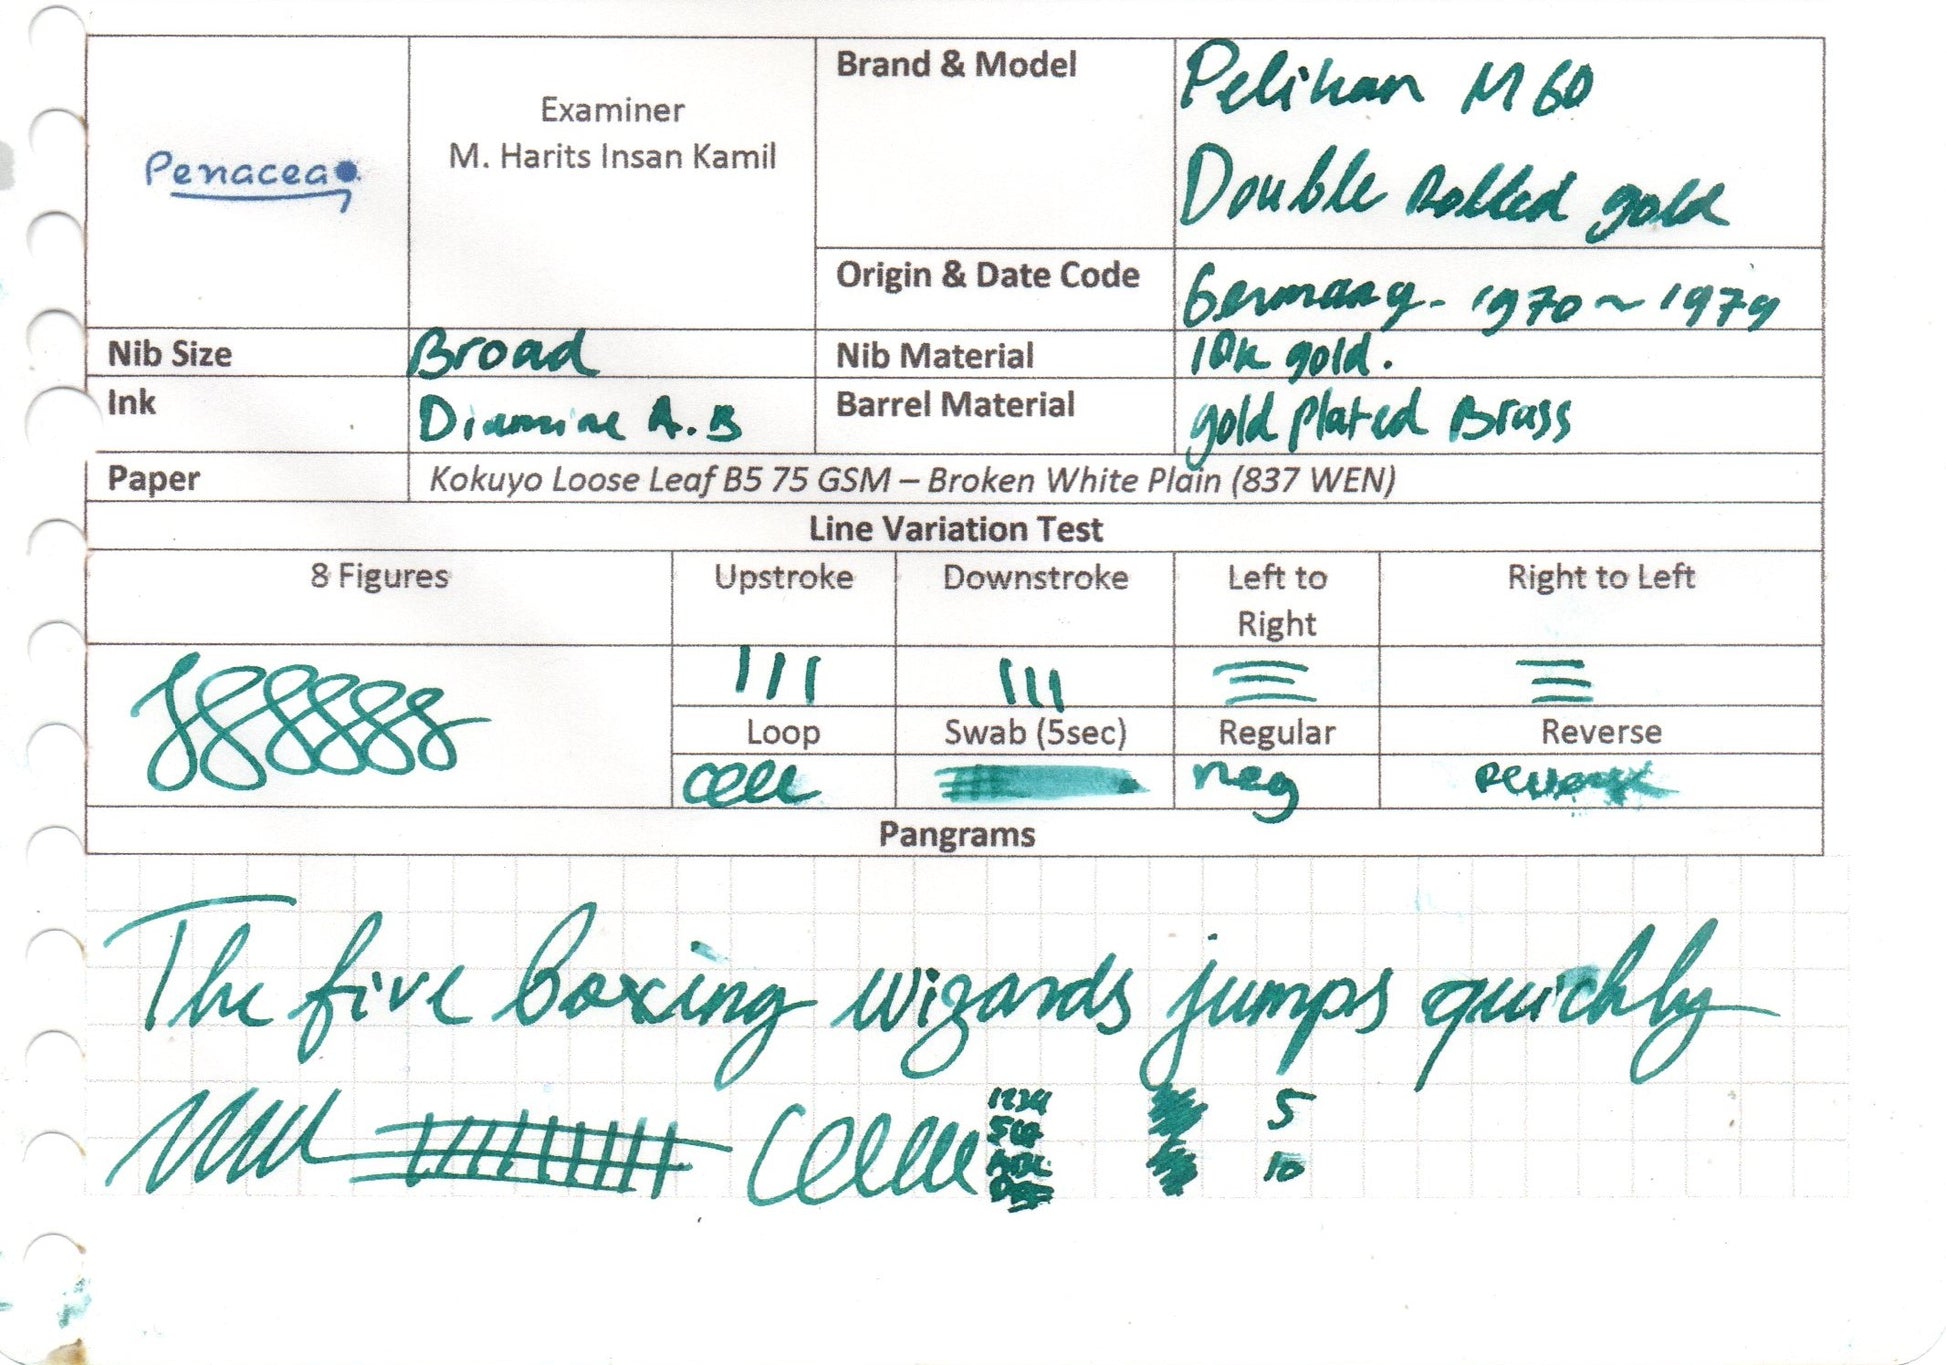 Penacea
Examiner
M. Harits Insan Kamil
Brand & Model
Pelikan M60
Double Rolled gold
Origin & Date Code
Germany - 1970 ~ 1979
Nib Size
Broad
Nib Material
10k gold.
Ink
Diamine A.B
Barrel Material
gold plated Brass
Paper
Kokuyo Loose Leaf B5 75 GSM – Broken White Plain (837 WEN)
Line Variation Test
8 Figures
Upstroke
Downstroke
Left to
Right
Right to Left
Loop
Swab (5sec)
Regular
Reverse
reg
Pangrams
The five boxing wizards jumps quickly
1234
5
10